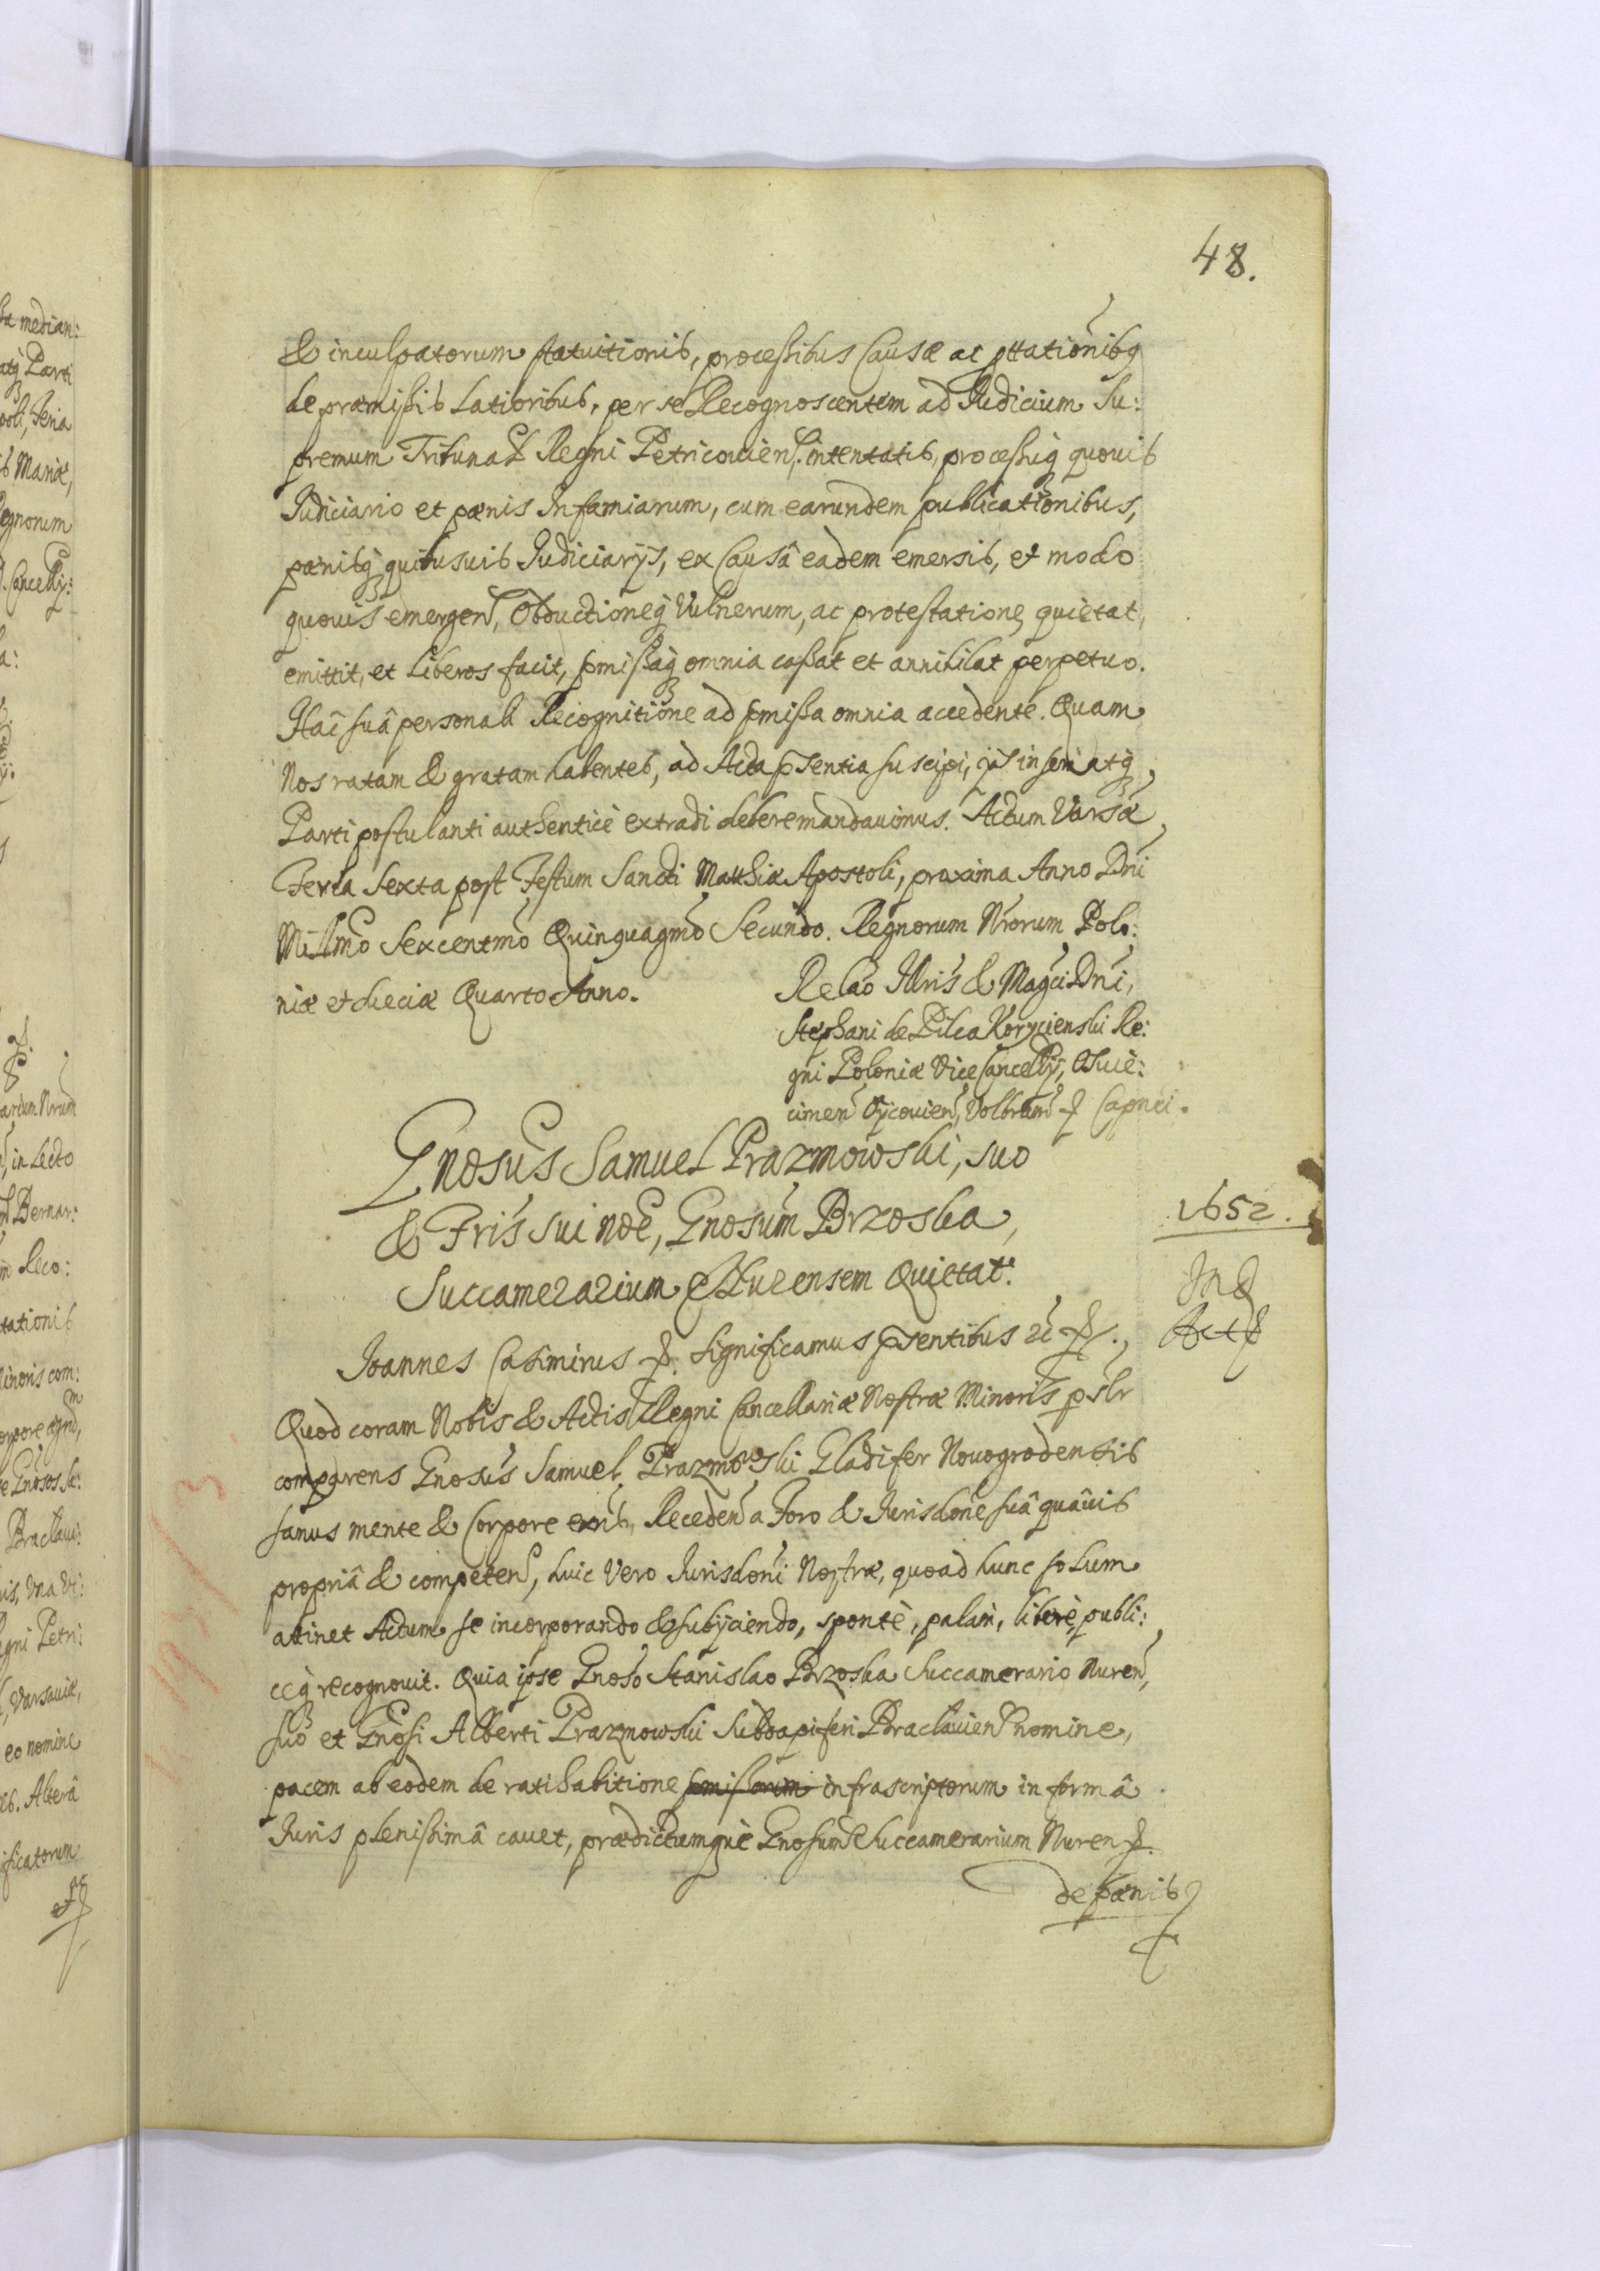 48.
& inculpatorum statuitionis, processibus Causæ ac pttationibq
de præmissis Latioribus, per se Recognoscentem ad Judicium Su:
premum Tribunal Regni Petricouien. intentatis, processuq quouis
Judiciario et pœnis Infamiarum, cum earundem publicationibus,
pœnibq quibusuis Judiciarÿs, ex Causâ eadem emersis, et modo
quouis emergen, Obductioneq Vulnerum, ac protestatione quietat,
emittit, et liberos facit, pmissaq omnia cassat et annihilat perpetuo.
Hac suâ personali Recognitione ad pmissa omnia accedente. Quam
Nos ratam & gratam habentes, ad Acta psentia suscipi, ijs inseri atq
Parti postulanti authenticè extradi debere mandauimus. Actum Varsæ
Feria Sexta post Festum Sancti Matthiæ Apostoli, proxima Anno Dni
Millmo Sexcentmo Quinquagmo Secundo. Regnorum Nrorum Polo:
niæ et Sueciæ Quarto Anno.
Relao Illris & Magci Dni,
Stephani de Pilca Korycienski Re:
gni Poloniæ Vice Cancellÿ, Osuie:
cimen Oycouien, Volbram & Capnei.
Gnosus Samuel Prazmowski, suo
& Fris sui noe, Gnosum Brzoska,
Succamerarium Nurensem Quittat.
1652.
Ind
Act
Joannes Casimirus &. Significamus psentibus &.,
Quod coram Nobis & Actis Regni Cancellariæ Nostræ Minoris pslr
comparens Gnosus Samuel Prazmowski Gladifer Nouogrodensis
sanus mente & Corpore exns, Receden a Foro & Jurisdone suâ quâuis
propriâ & competen, huic vero Jurisdoni Nostræ, quoad hunc solum
attinet Actum se incorporando & subÿciendo, spontè, palàm, liberè, publi:
ceq recognouit. Quia ipse Gnoso Stanislao Brzoska Succamerario Nuren,
suo et Gnosi Alberti Prazmowski Subdapiferi Braclauien nomine,
pacem ab eodem de ratihabitione pmissorum infrascriptorum in formâ
Juris plenissimâ cauet, prædictumquè Gnosum Succamerarium Nuren &.
de pœnis